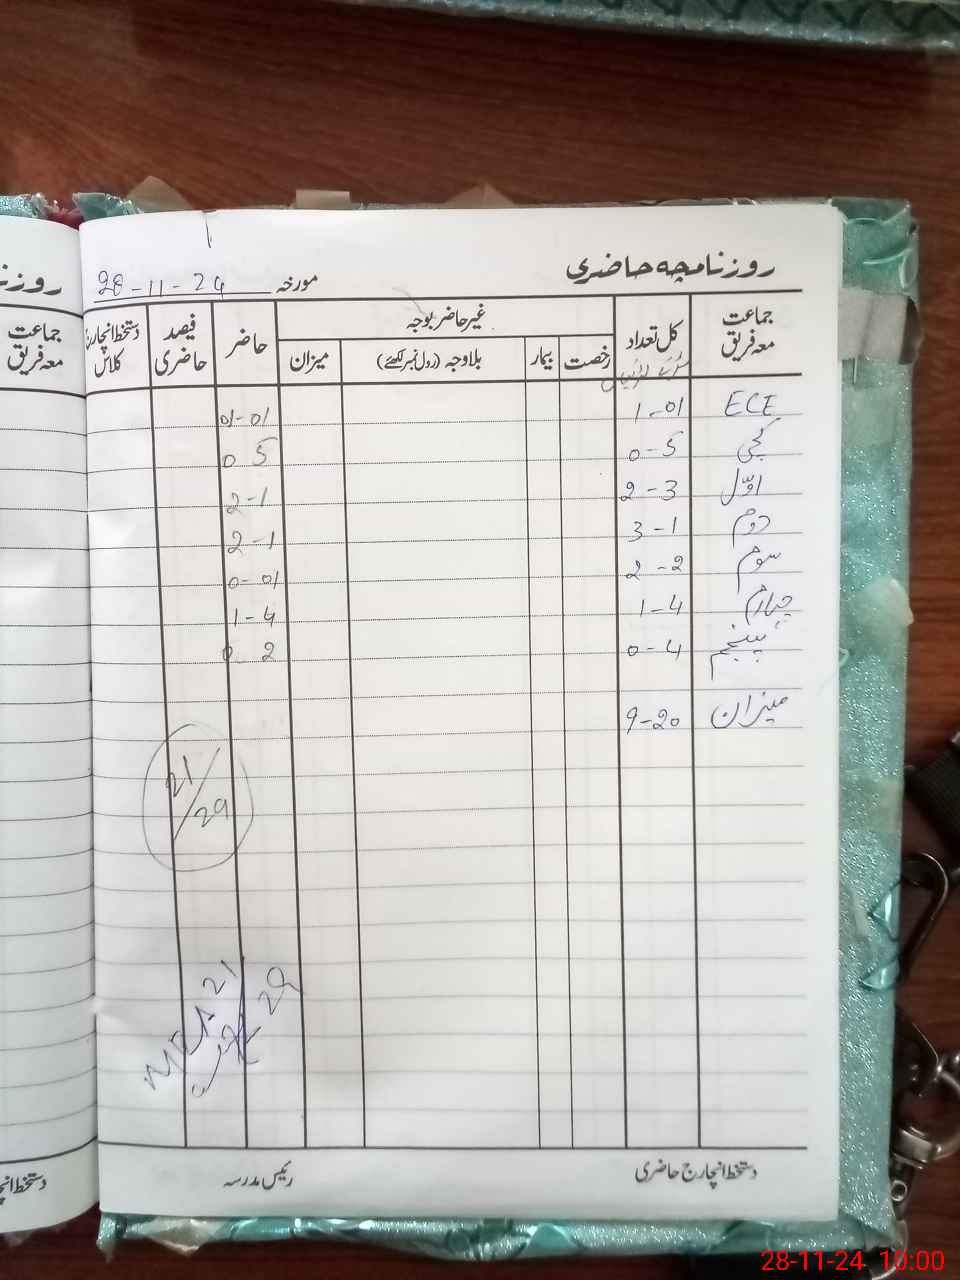 روزنامچہ حاضری
مورخہ 28-11-24
جماعت معہ فریق کل تعداد غیر حاضر بوجہ حاضر فیصد حاضری دستخط انچارج کلاس
رخصت بیمار بلاوجہ (رول نمبر لکھئے) میزان
ECE 1-01 01-01
کچی 0-5 0 5
اوّل 2-3 2-1
دوم 3-1 2-1
سوم 2-2 0-01
چہارم 1-4 1-4
پنجم 0-4 0 2
میزان 9-20
21/29
21
29
دستخط انچارج حاضری رئیس مدرسہ
روزنا
جماعت معہ فریق
دستخط انچا
28-11-24 10:00